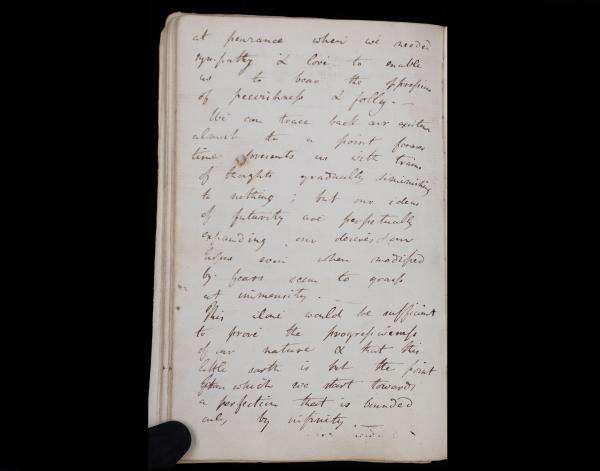 at penurance when we needed
sympathy & love to enable
us to bear the oppression
of peevishness & folly. —
We can trace back our existence
almost to a point former
time presents us with trains
of thoughts gradually diminishing
to nothing; but our ideas
of futurity are perpetually
expanding our desires & our
hopes even when modified
by fears seem to grasp
at immensity. —
This alone would be sufficient
to prove the progressiveness
of our nature & that this
little earth is but the point
from which we start towards
a perfection that is bounded
only by infinity. —